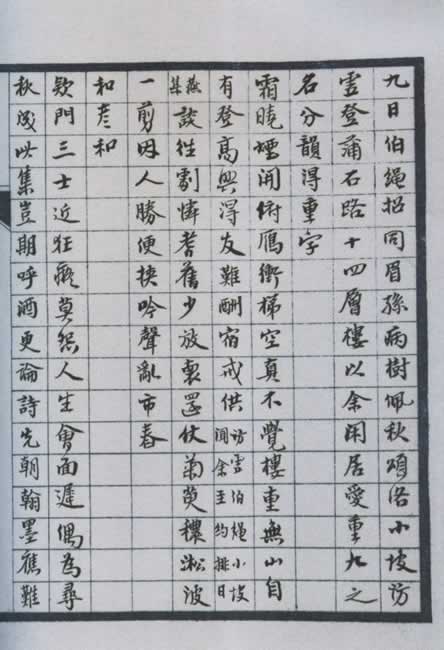 九日伯繩招同眉孫病樹佩秋頌洛小坡訪
雲登蒲石路十四層樓以余閑居愛重九之
名分韻得重字
霜曉煙開俯雁衝梯空真不覺樓重無山自
有登高興得友難酬宿戒供訪雲伯繩小坡聞余至約排日
燕集談往劇憐耆舊少放懷還仗菊萸穠淞波
一剪因人勝便挾吟聲亂市舂
和彥和
欵門三士近狂癡莫怨人生會面遲偶為尋
秋成此集豈期呼酒更論詩先朝翰墨應難